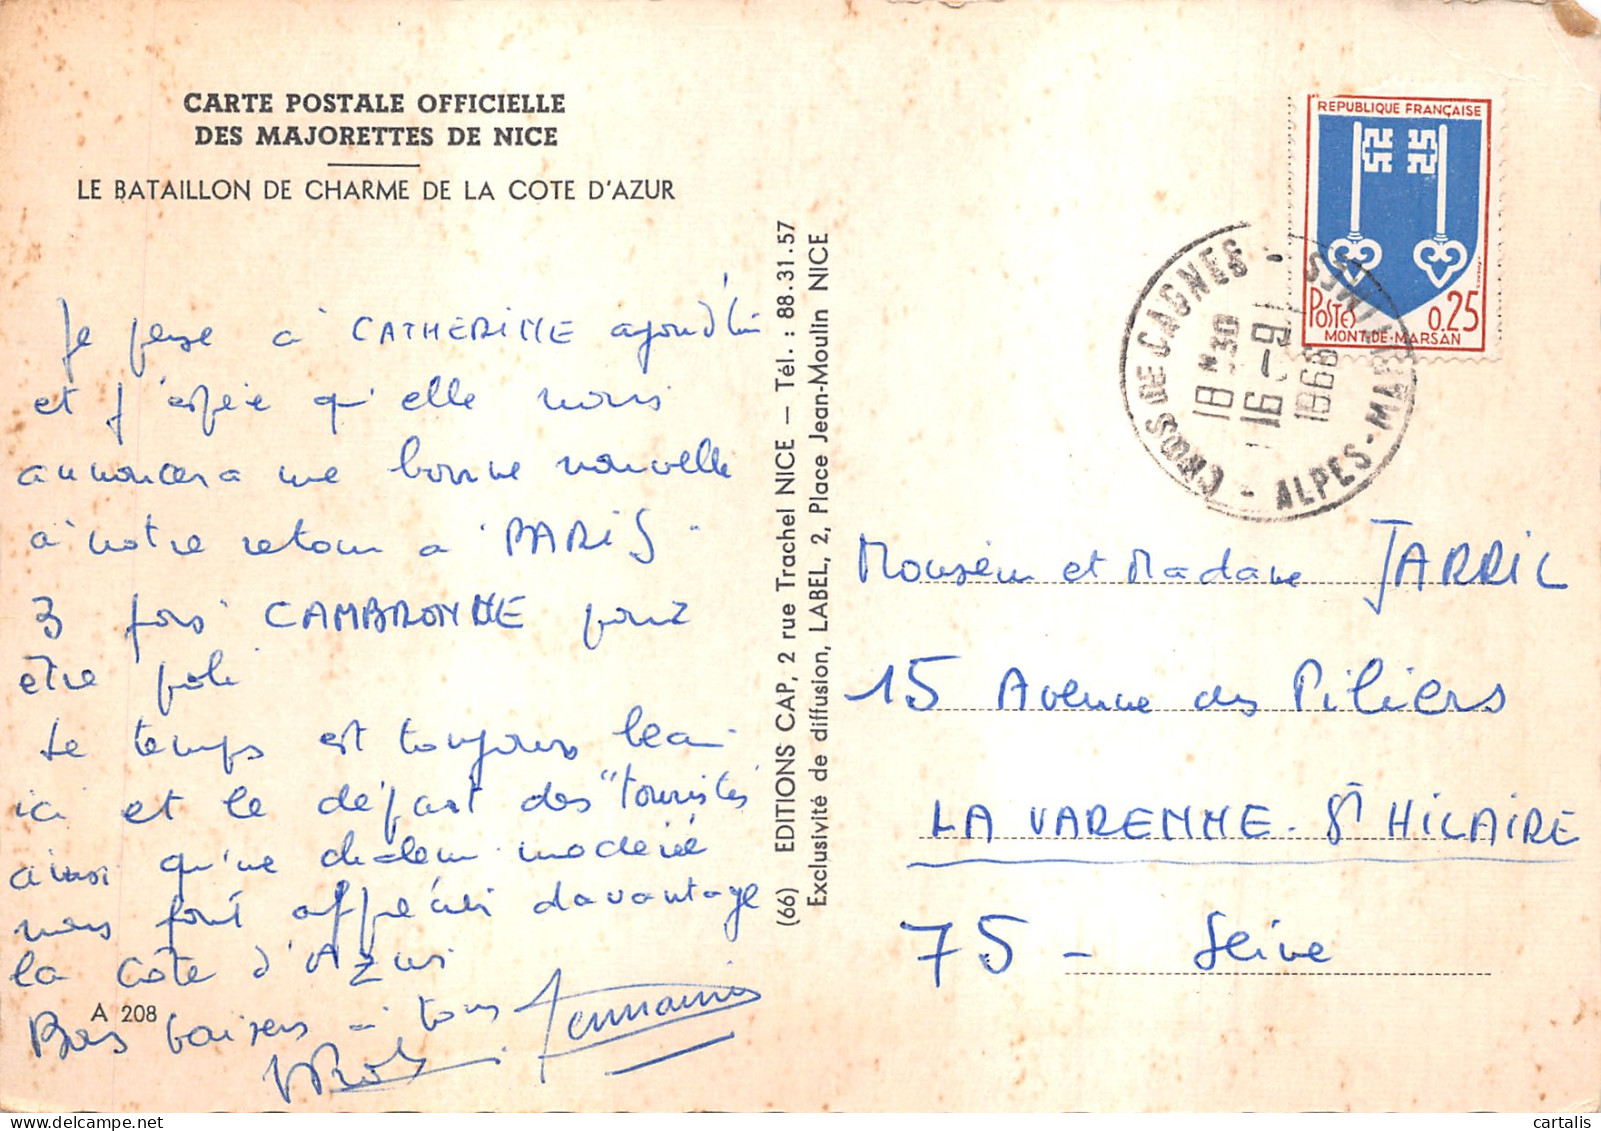 CARTE POSTALE OFFICIELLE
DES MAJORETTES DE NICE
LE BATAILLON DE CHARME DE LA COTE D'AZUR
Je pense à CATHERINE
et j'espère qu'elle nous
annoncera une bonne nouvelle
à notre retour à "PARIS"
3 fois CAMBRONNE pour
être poli
Le temps est toujours beau
ici et le départ des "touristes
ainsi qu'une chaleur modérée
nous font apprécier davantage
la côte d'Azur
Bons baisers à tous
A 208
(66) EDITIONS CAP, 2 rue Trachel NICE — Tél. : 88.31.57
Exclusivité de diffusion, LABEL, 2, Place Jean-Moulin NICE
REPUBLIQUE FRANÇAISE
POSTES 0,25
MONT-DE-MARSAN
CROS DE CAGNES - ALPES-MARITIMES
18 H 30
16 - 9
1968
Monsieur et Madame JARRIL
15 Avenue des Piliers
LA VARENNE - St HILAIRE
75 - Seine
cartalis